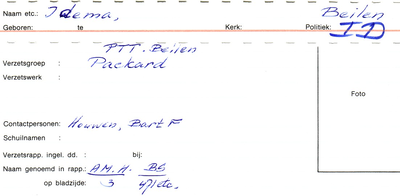 Naam etc.: Idema, Beilen
Geboren: te Kerk: Politiek: ID
PTT. Beilen
Verzetsgroep : Packard
Verzetswerk :
Foto
Contactpersonen: Houwen, Bart F
Schuilnamen :
Verzetsrapp. ingel. dd. : bij:
Naam genoemd in rapp.: AM. H. BS
op bladzijde: 3